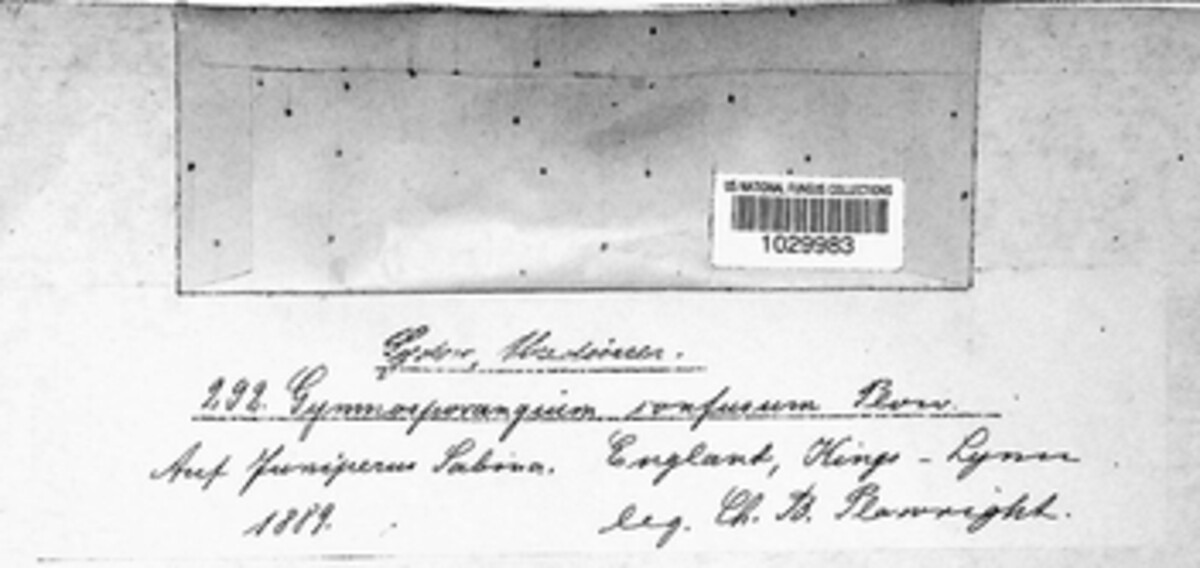 US NATIONAL FUNGUS COLLECTIONS
1029983
Sydow, Uredineen.
292. Gymnosporangium confusum Plow.
Auf Juniperus Sabina. England, Kings-Lynn
1889. leg. Ch. B. Plowright.